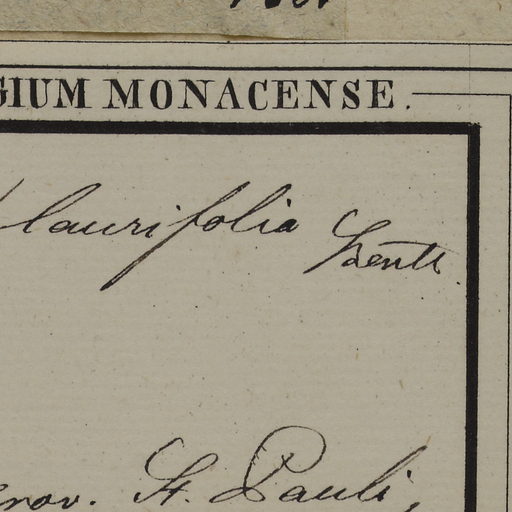 GIUM MONACENSE.
laurifolia Benth.
nov. St. Pauli,